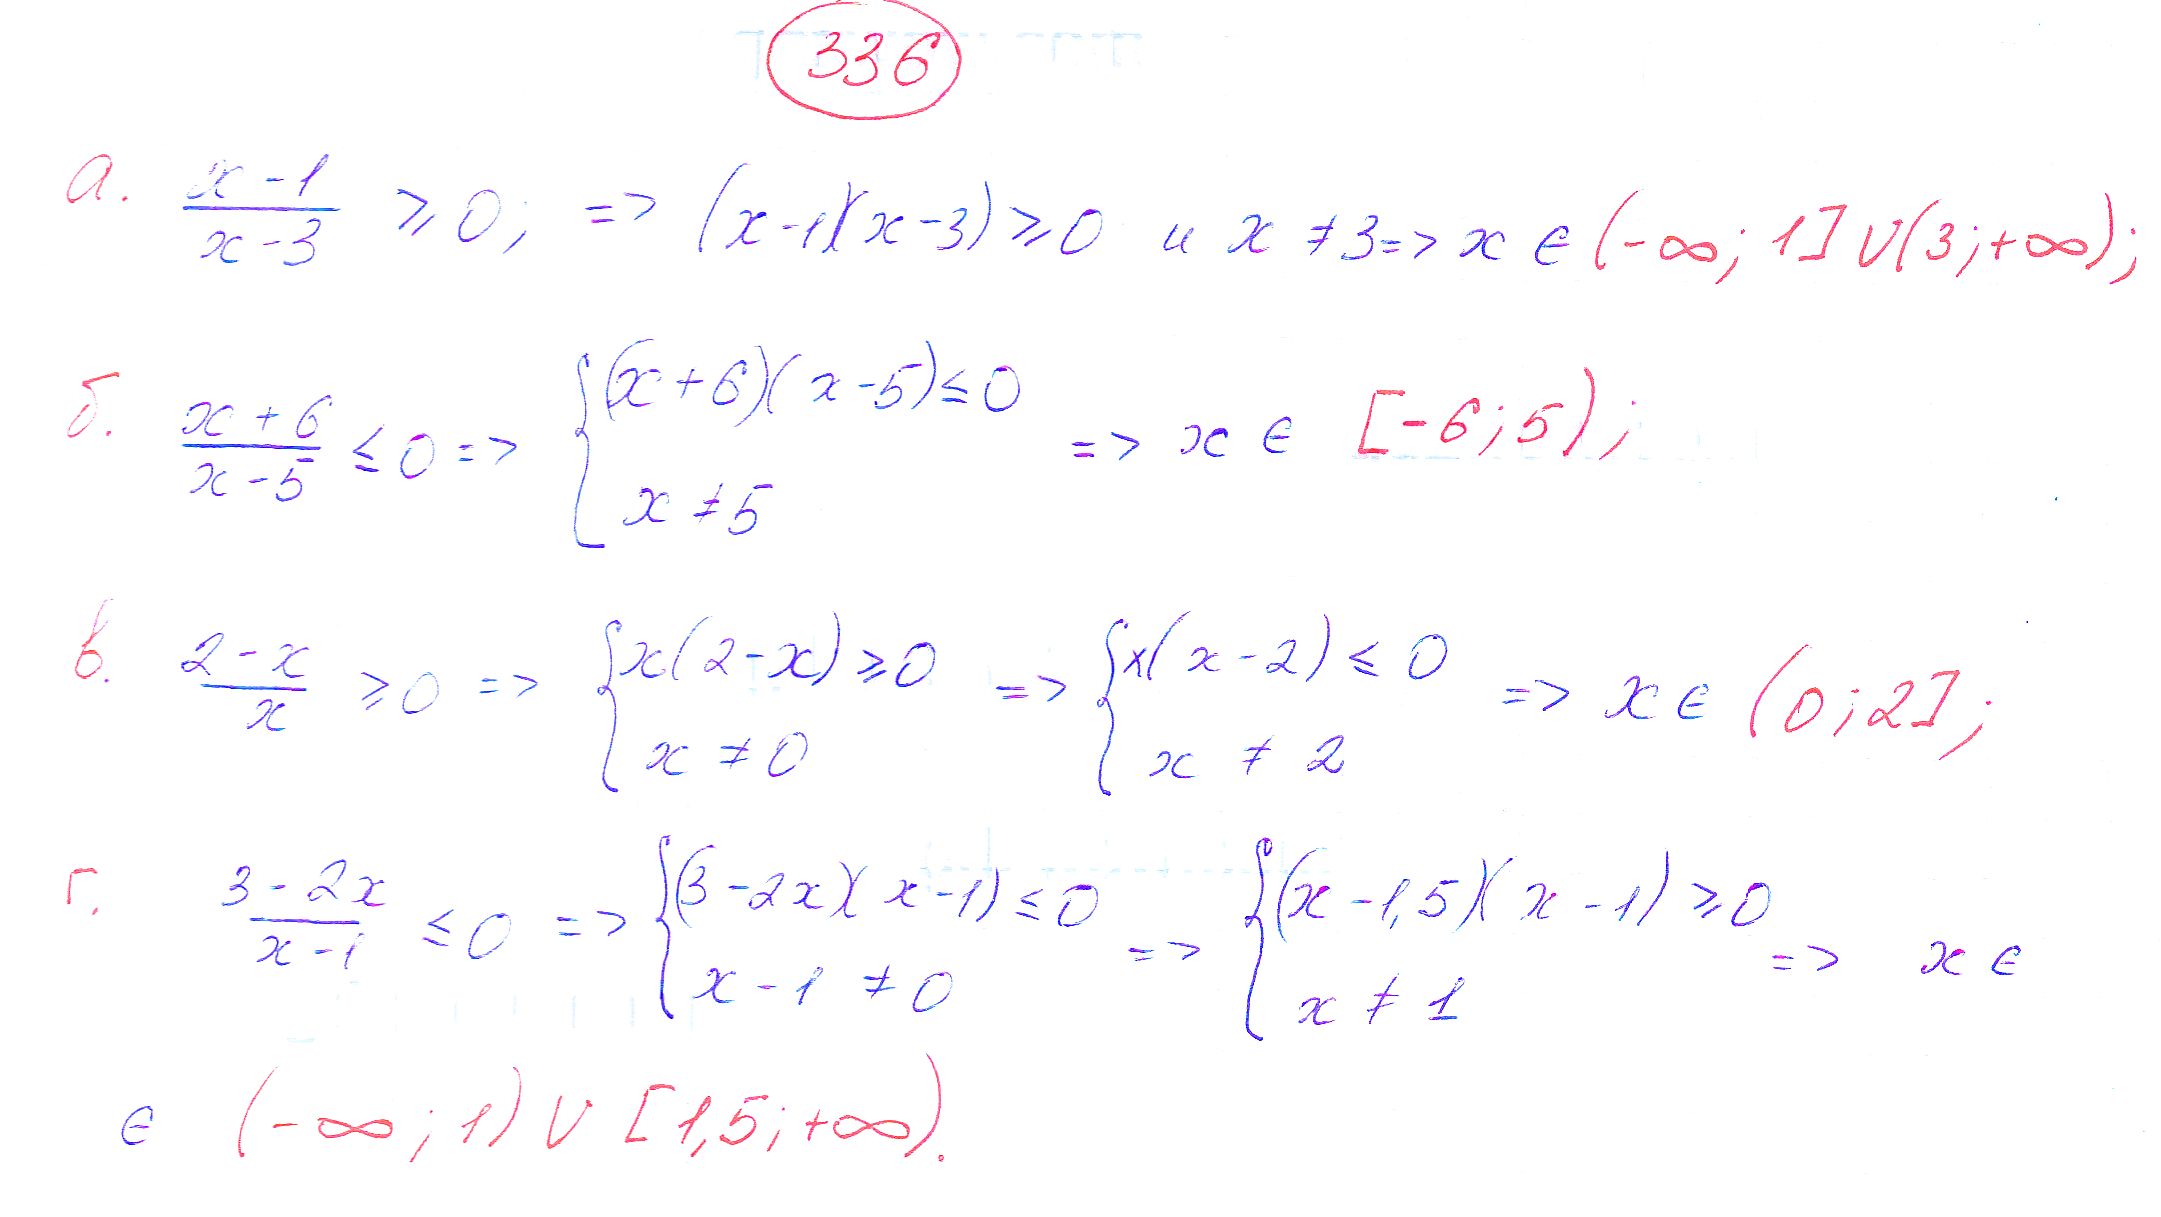 336
а. (x-1)/(x-3) ⩾ 0; => (x-1)(x-3) ⩾ 0 и x ≠ 3 => x ∈ (-∞; 1] ∪ (3; +∞);
б. (x+6)/(x-5) ≤ 0 => { (x+6)(x-5) ≤ 0 ; x ≠ 5 => x ∈ [-6; 5);
в. (2-x)/x ⩾ 0 => { x(2-x) ⩾ 0 ; x ≠ 0 => { x(x-2) ≤ 0 ; x ≠ 2 => x ∈ (0; 2];
г. (3-2x)/(x-1) ≤ 0 => { (3-2x)(x-1) ≤ 0 ; x-1 ≠ 0 => { (x-1,5)(x-1) ⩾ 0 ; x ≠ 1 => x ∈
∈ (-∞; 1) ∪ [1,5; +∞).